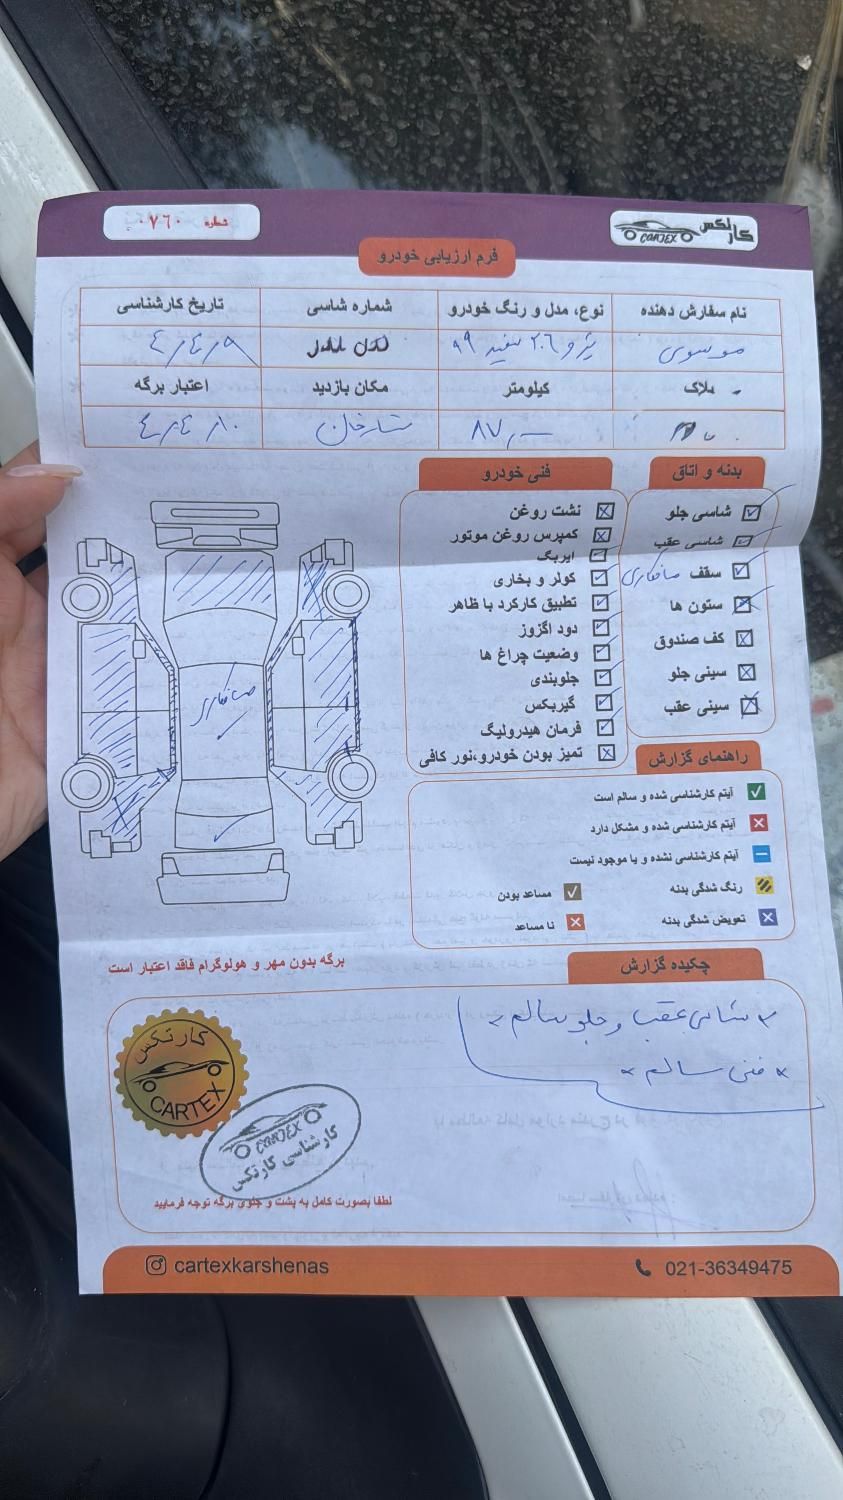 شماره ۰۷۶۰
کارتکس
CARTEX
فرم ارزیابی خودرو
نام سفارش دهنده
نوع، مدل و رنگ خودرو
شماره شاسی
تاریخ کارشناسی
موسوی
پژو ۲۰۶ سفید ۹۹
۴/۴/۸
پلاک
کیلومتر
مکان بازدید
اعتبار برگه
۸۷,۰۰۰
ستارخان
۴/۴/۱۰
بدنه و اتاق
شاسی جلو
شاسی عقب
سقف صافکاری
ستون ها
کف صندوق
سینی جلو
سینی عقب
فنی خودرو
نشت روغن
کمپرس روغن موتور
ایربگ
کولر و بخاری
تطبیق کارکرد با ظاهر
دود اگزوز
وضعیت چراغ ها
جلوبندی
گیربکس
فرمان هیدرولیگ
تمیز بودن خودرو،نور کافی
صافکاری
راهنمای گزارش
آیتم کارشناسی شده و سالم است
آیتم کارشناسی شده و مشکل دارد
آیتم کارشناسی نشده و یا موجود نیست
رنگ شدگی بدنه
مساعد بودن
تعویض شدگی بدنه
نا مساعد
چکیده گزارش
برگه بدون مهر و هولوگرام فاقد اعتبار است
* شاسی عقب و جلو سالم *
* فنی سالم *
کارتکس
CARTEX
CARTEX
کارشناسی کارتکس
لطفا بصورت کامل به پشت و جلوی برگه توجه فرمایید
cartexkarshenas
021-36349475